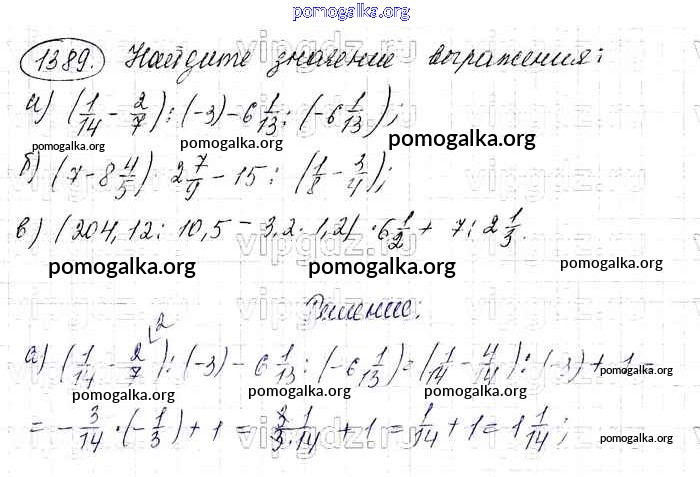 pomogalka.org
1389. Найдите значение выражения:
а) (1/14 - 2/7) : (-3) - 6 1/13 : (-6 1/13);
pomogalka.org pomogalka.org
б) (7 - 8 4/5) · 2 7/9 - 15 : (1/8 - 3/4);
pomogalka.org
в) (204,12 : 10,5 - 3,2 · 1,2) · 6 1/2 + 7 : 2 1/3.
pomogalka.org pomogalka.org pomogalka.org
Решение:
а) (1/14 - 2/7 \2) : (-3) - 6 1/13 : (-6 1/13) = (1/14 - 4/14) : (-3) + 1 =
pomogalka.org pomogalka.org pomogalka.org pomogalka.org
= - 3/14 · (-1/3) + 1 = 3·1/3·14 + 1 = 1/14 + 1 = 1 1/14;
pomogalka.org
vipgdz.ru